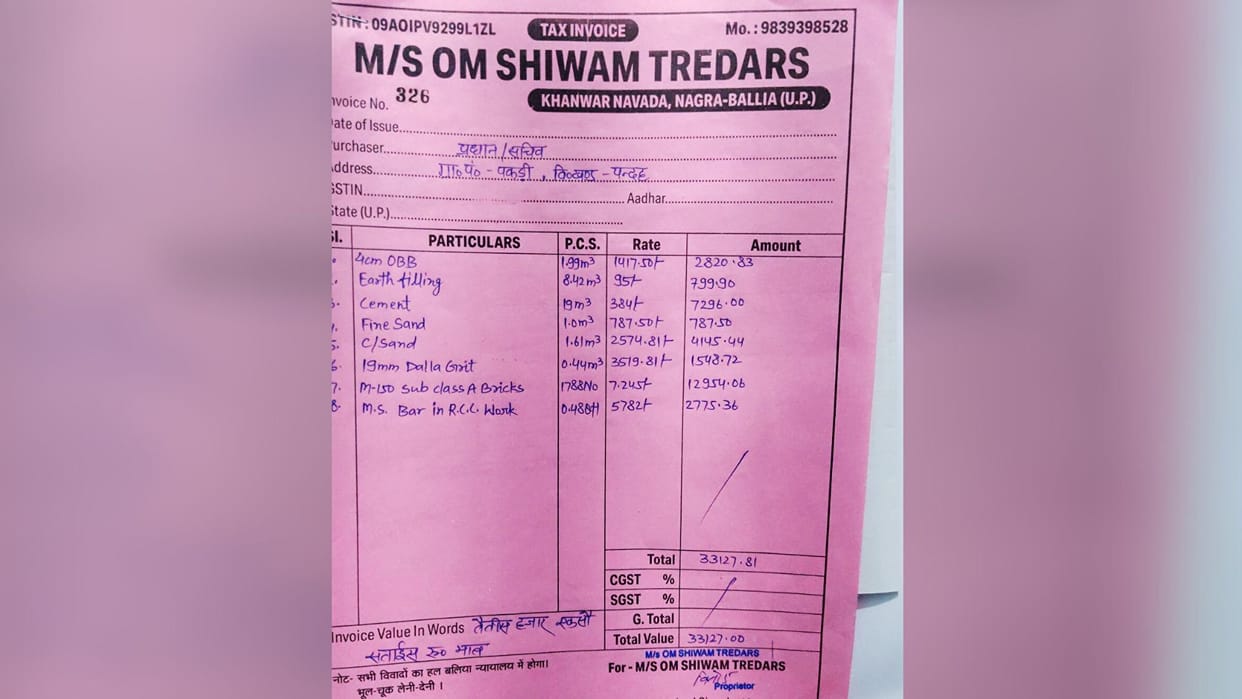 STIN : 09AOIPV9299L1ZL TAX INVOICE Mo. : 9839398528
M/S OM SHIWAM TREDARS
nvoice No. 326 KHANWAR NAVADA, NAGRA-BALLIA (U.P.)
ate of Issue
urchaser प्रधान/सचिव
ddress ग्रा०पं० - पकड़ी, वि०खण्ड - पन्दह
GSTIN Aadhar
State (U.P.)
Sl. PARTICULARS P.C.S. Rate Amount
4cm OBB 1.99m³ 1417.50/- 2820.83
Earth filling 8.42m³ 95/- 799.90
3. Cement 19m³ 384/- 7296.00
4. Fine Sand 1.0m³ 787.50/- 787.50
5. C/Sand 1.61m³ 2574.81/- 4145.44
6. 19mm Dalla Grit 0.44m³ 3519.81/- 1548.72
7. M-150 Sub class A Bricks 1788No 7.245/- 12954.06
8. M.S. Bar in R.C.C. Work 5782/- 2775.36
Total 33127.81
CGST %
SGST %
G. Total
Invoice Value In Words तैतीस हजार एकसौ
सताईस रु० मात्र
Total Value 33127.00
M/s OM SHIWAM TREDARS
नोट- सभी विवादों का हल बलिया न्यायालय में होगा।
For - M/S OM SHIWAM TREDARS
भूल-चूक लेनी-देनी ।
Proprietor